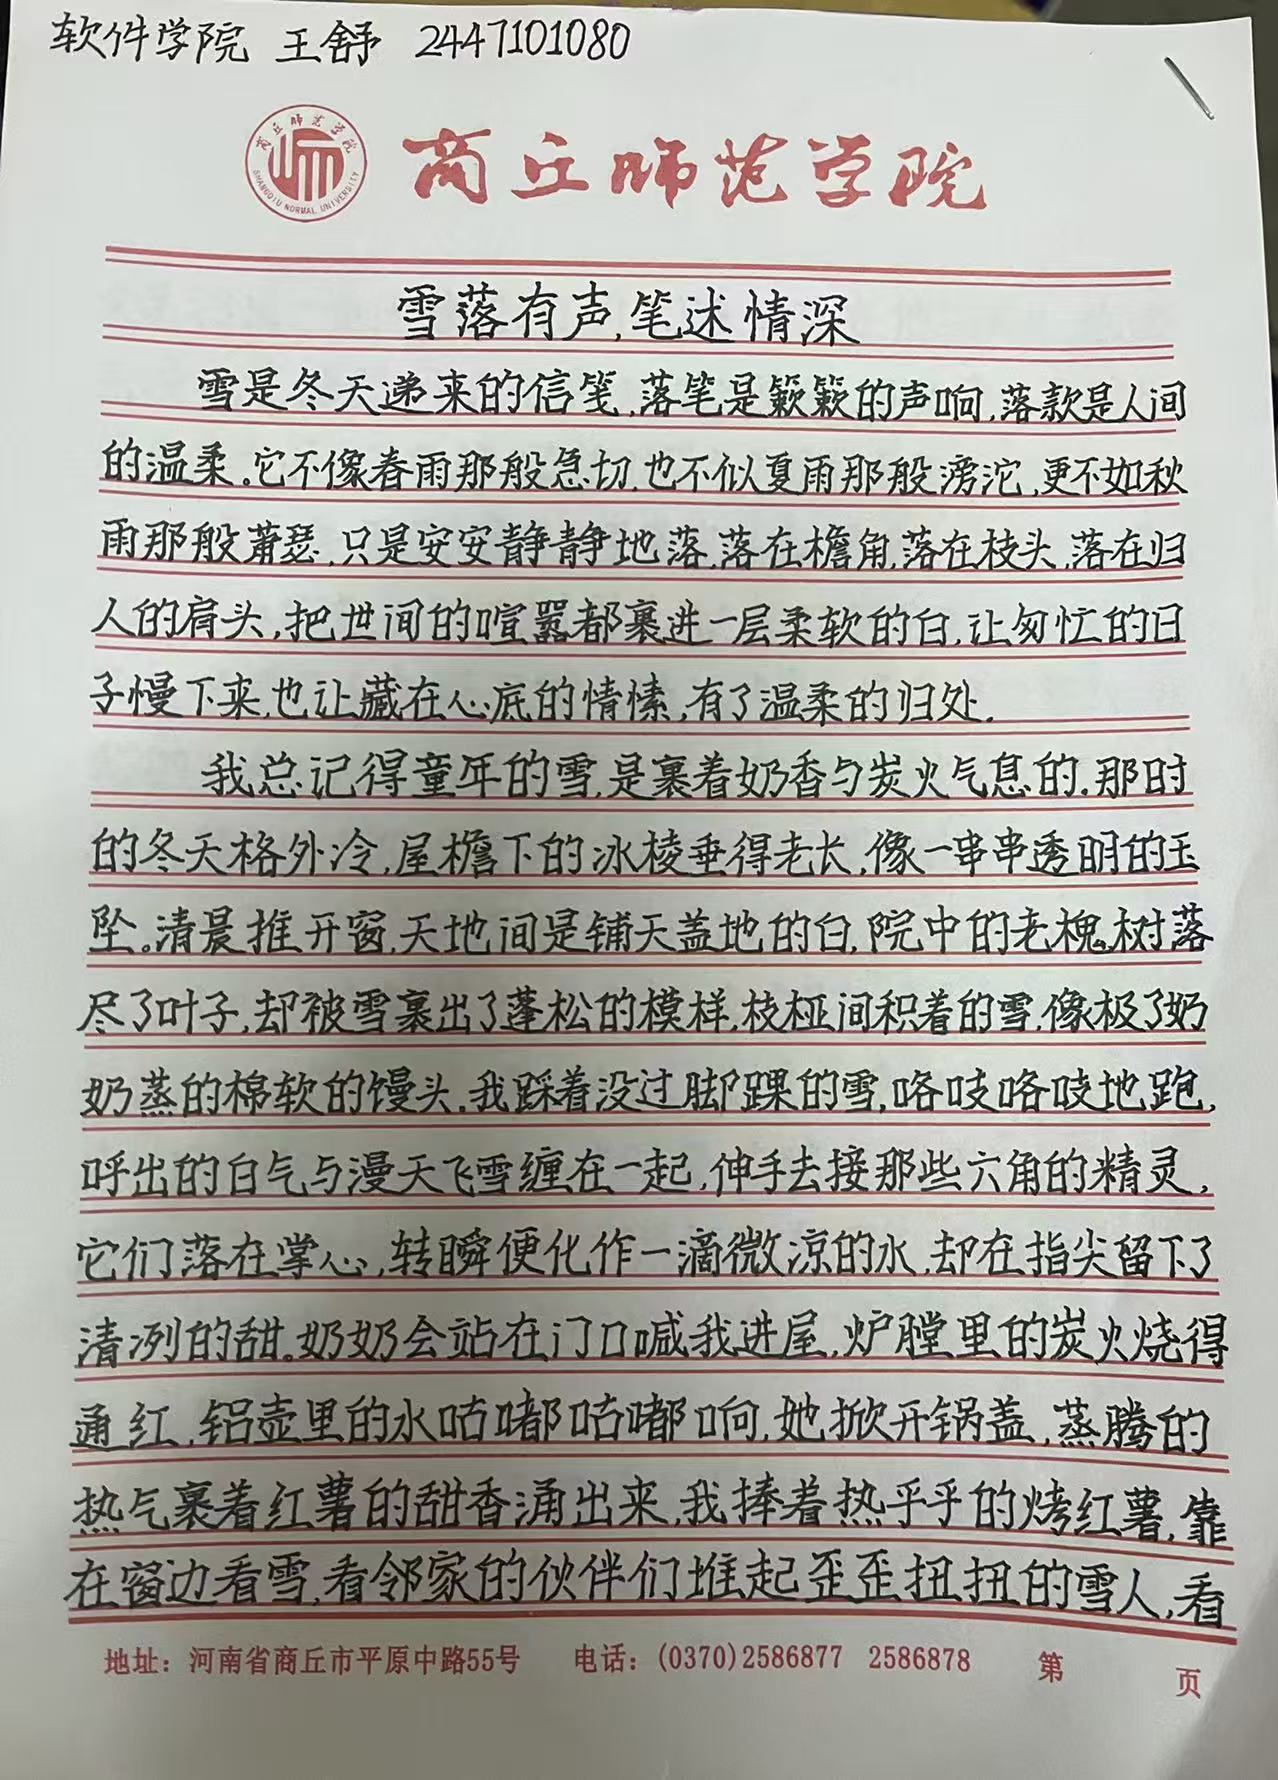 软件学院 王舒 2447101080
商丘师范学院
SHANGQIU NORMAL UNIVERSITY
商丘师范学院
雪落有声,笔述情深
雪是冬天递来的信笺,落笔是簌簌的声响,落款是人间
的温柔。它不像春雨那般急切,也不似夏雨那般滂沱,更不如秋
雨那般萧瑟,只是安安静静地落,落在檐角,落在枝头,落在归
人的肩头,把世间的喧嚣都裹进一层柔软的白,让匆忙的日
子慢下来,也让藏在心底的情愫,有了温柔的归处.
我总记得童年的雪,是裹着奶香与炭火气息的.那时
的冬天格外冷,屋檐下的冰棱垂得老长,像一串串透明的玉
坠。清晨推开窗,天地间是铺天盖地的白,院中的老槐树落
尽了叶子,却被雪裹出了蓬松的模样,枝桠间积着的雪,像极了奶
奶蒸的棉软的馒头.我踩着没过脚踝的雪,咯吱咯吱地跑,
呼出的白气与漫天飞雪缠在一起,伸手去接那些六角的精灵,
它们落在掌心,转瞬便化作一滴微凉的水,却在指尖留下了
清冽的甜。奶奶会站在门口喊我进屋,炉膛里的炭火烧得
通红,铝壶里的水咕嘟咕嘟响,她掀开锅盖,蒸腾的
热气裹着红薯的甜香涌出来,我捧着热乎乎的烤红薯,靠
在窗边看雪,看邻家的伙伴们堆起歪歪扭扭的雪人,看
地址：河南省商丘市平原中路55号 电话：(0370)2586877 2586878 第 页